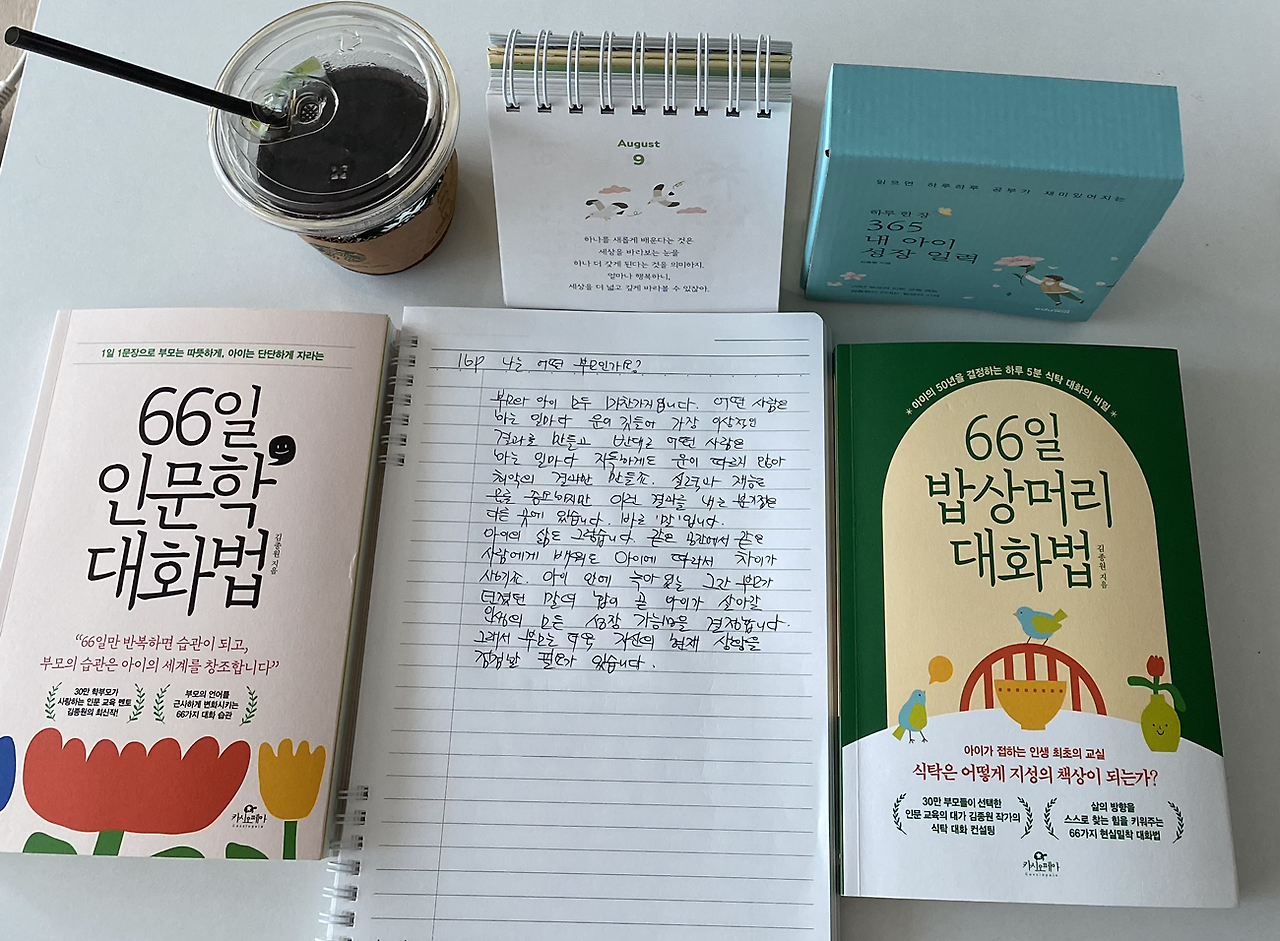 August
9
하나를 새롭게 배운다는 것은
세상을 바라보는 눈을
하나 더 갖게 된다는 것을 의미하지.
얼마나 행복하니,
세상을 더 넓고 깊게 바라볼 수 있잖아.
읽으면 하루하루 공부가 재미있어지는
하루 한 장
365
내 아이
성장 일력
1일 1문장으로 부모는 따뜻하게, 아이는 단단하게 자라는
66일
인문학
대화법
김종원 지음
“66일만 반복하면 습관이 되고,
부모의 습관은 아이의 세계를 창조합니다”
30만 학부모가
사랑하는 인문 교육 멘토
김종원의 최신작!
부모의 언어를
근사하게 변화시키는
66가지 대화 습관
카시오페아
Cassiopeia
16P 나는 어떤 부모인가요?
부모와 아이 모두 마찬가지입니다. 어떤 사람은
하는 일마다 운이 깃들어 가장 이상적인
결과로 만들고 반대로 어떤 사람은
하는 일마다 지독하게도 운이 따르지 않아
최악의 결과만 만들죠. 실력과 재능은
모두 중요하지만 이런 결과를 내는 본질은
다른 곳에 있습니다. 바로 '말'입니다.
아이의 삶도 그렇습니다. 같은 공간에서 같은
사람에게 배워도 아이에 따라서 차이가
생기죠. 아이 안에 녹아 있는, 그간 부모가
던졌던 말의 합이 곧 아이가 살아갈
인생의 모든 성장 가능성을 결정합니다.
그래서 부모는 더욱 자신의 현재 상황을
점검할 필요가 있습니다.
아이의 50년을 결정하는 하루 5분 식탁 대화의 비밀
66일
밥상머리
대화법
김종원 지음
아이가 접하는 인생 최초의 교실
식탁은 어떻게 지성의 책상이 되는가?
30만 부모들이 선택한
인문 교육의 대가 김종원 작가의
식탁 대화 컨설팅
삶의 방향을
스스로 찾는 힘을 키워주는
66가지 현실밀착 대화법
카시오페아
Cassiopeia